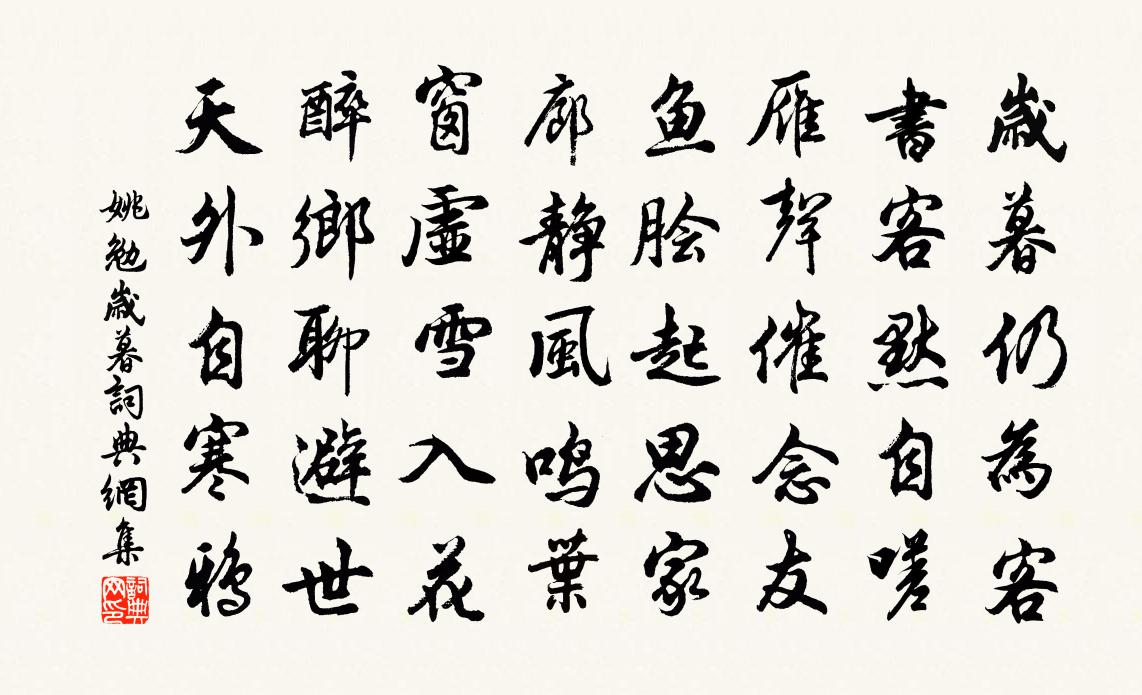 歲暮仍為客
書客黙自嗟
雁聲催念友
魚膾起思家
廊靜風鳴葉
窗虛雪入花
醉鄉聊避世
天外自寒鴉
姚勉歲暮詞典網集
詞典網印